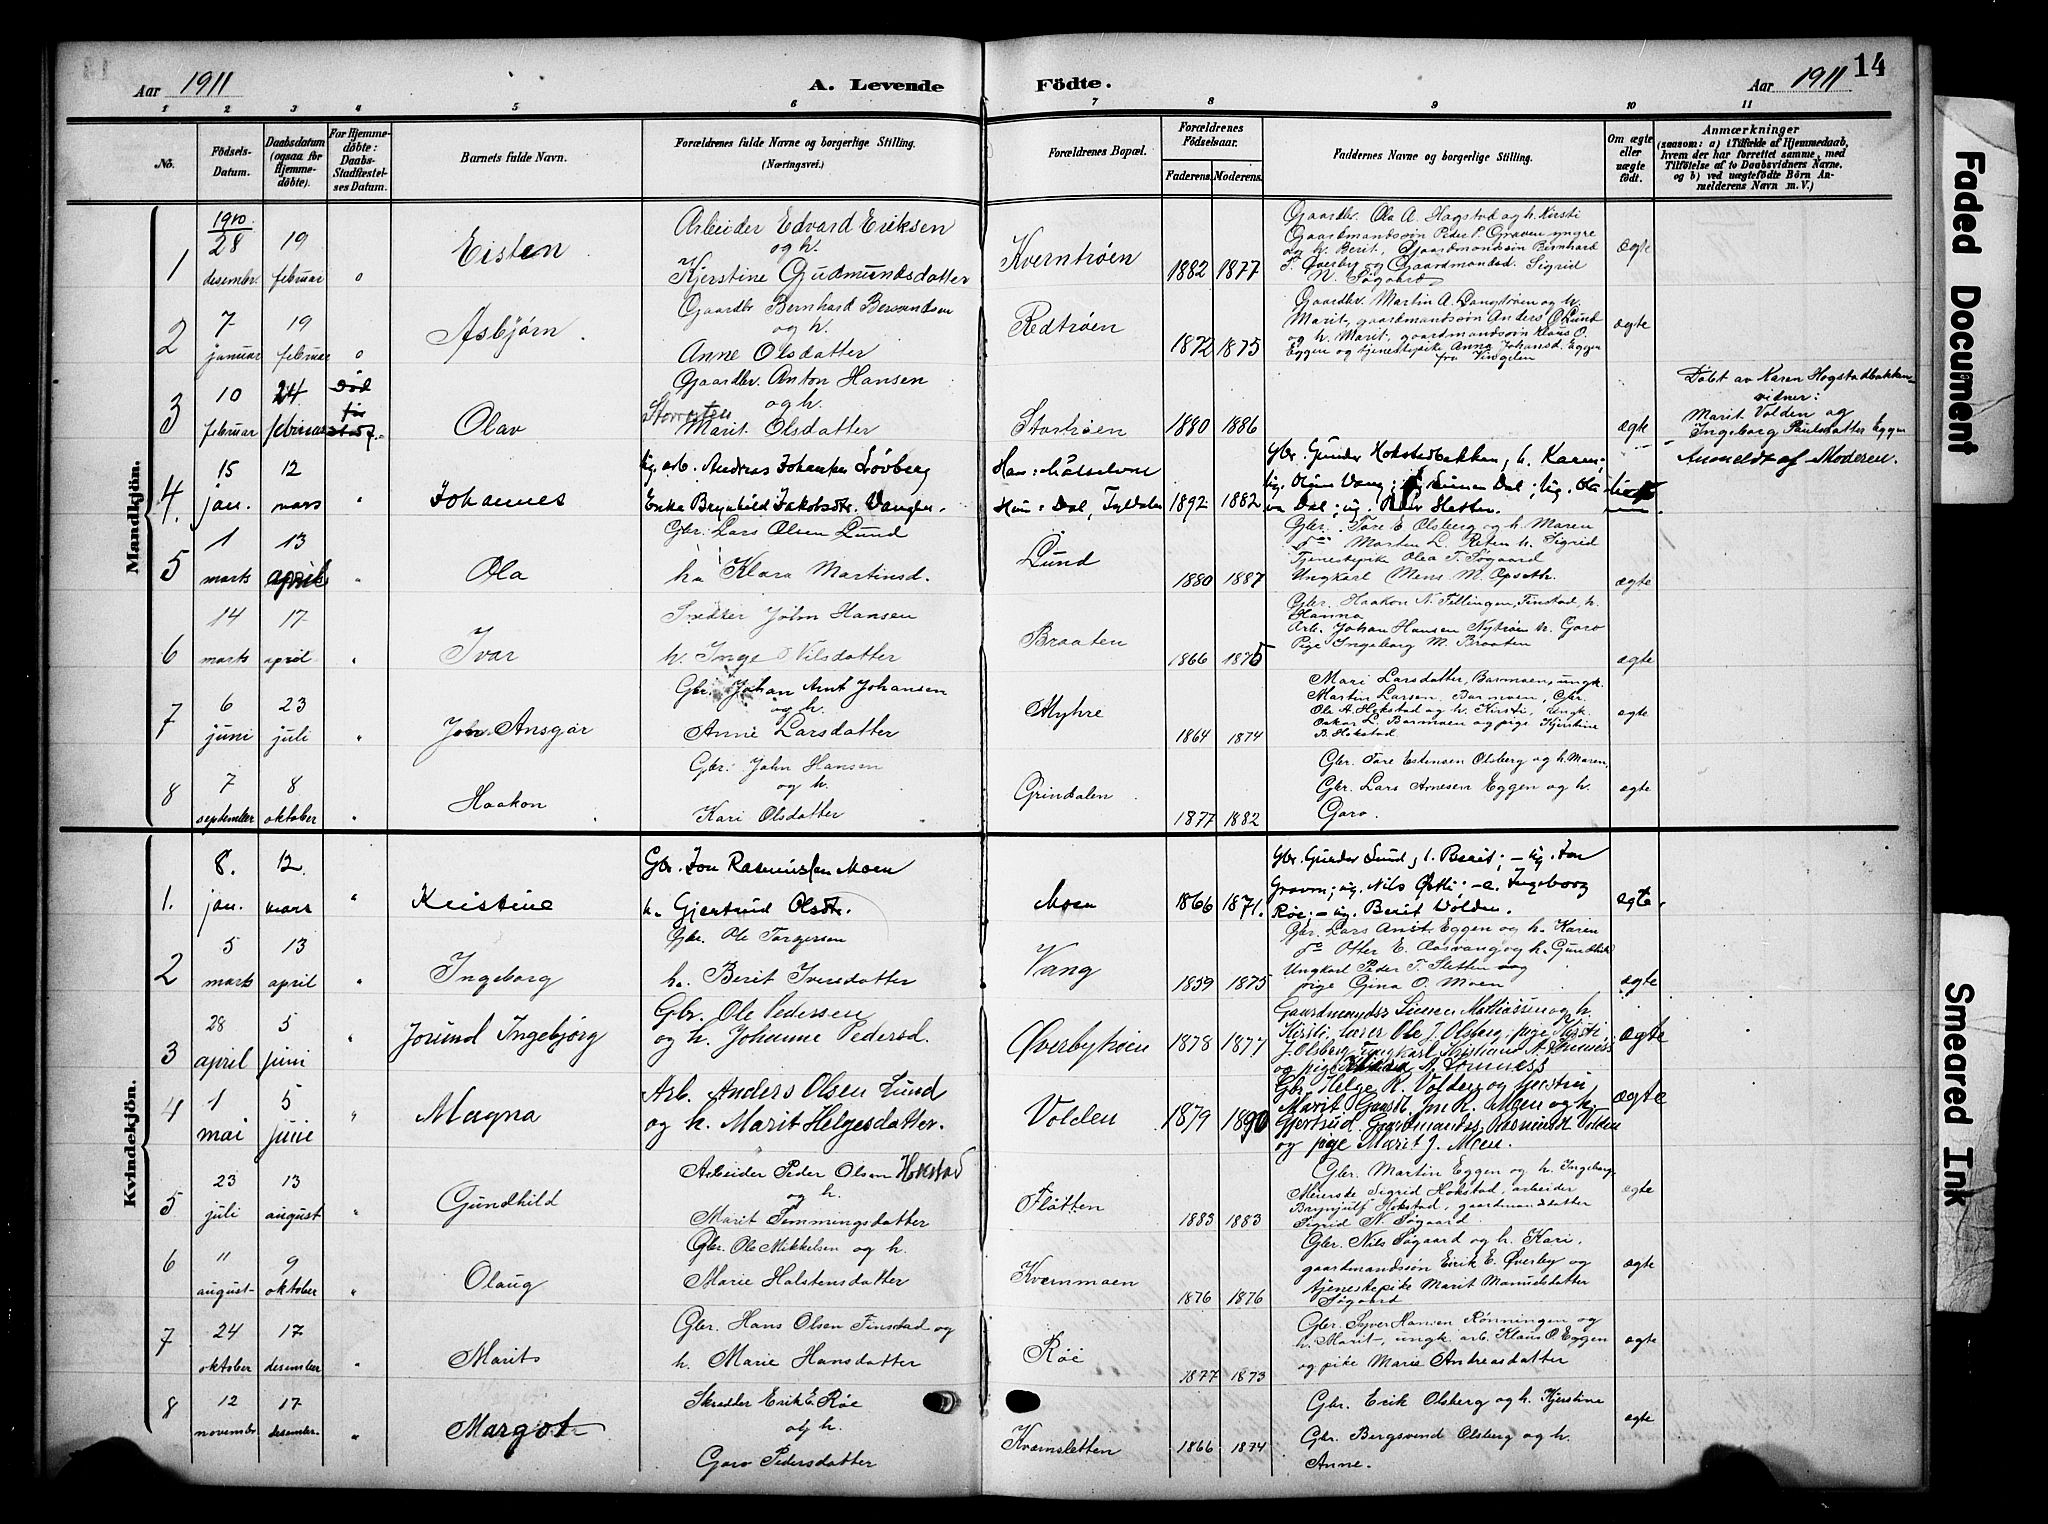 Aar 1911
A. Levende
Födte.
Aar 1911
14
1 2 3 4 5 6 7 8 9 10 11
No.
Födsels-Datum.
Daabsdatum (ogsaa for Hjemmedöbte).
For Hjemmedöbte: Daabs-Stadfæstelses Datum.
Barnets fulde Navn.
Forældrenes fulde Navne og borgerlige Stilling.
(Næringsvei.)
Forældrenes Bopæl.
Forældrenes Födselsaar.
Faderens. Moderens.
Faddernes Navne og borgerlige Stilling.
Om ægte eller uægte født.
Anmærkninger
(saasom: a) i Tilfælde af Hjemmedaab, hvem der har forrettet samme, med Tilföielse af to Daabsvidners Navne. og b) ved uægtefödte Börn Anmelderens Navn m. V.)
Mandkjön.
1
1910
28 desembr.
19 februar
o
Eisten
Arbeider Edvard Eriksen
og h.
Kjerstine Gudmundsdatter
Kverntrøen
1882 1877
Gaardbr. Ola A. Hogstad og h. Kirsti
Gaardmandssøn Peder P. Graven yngre
og h. Berit, Gaardmandssøn Bernhard
T. Øverby og Gaardmandsd. Sigrid
N. Søgaard
ægte
2
7 januar
19 februar
o
Asbjørn
Gaardbr Bernhard Bersvendsen
og h.
Anne Olsdatter
Rødtrøen
1872 1875
Gaardbr. Martin A. Langtrøen og h.
Marit, gaardmandssøn Anders O. Lund
og h. Marit, gaardmandssøn Klaus O.
Eggen og tjenestepike Anna Johansd. Eggen
fra Vingelen
ægte
3
10 februar
24 februar
Død før stadf.
Olav
Gaardbr. Anton Hansen
og h.
Marit Olsdatter
Stortrøen
1880 1886
ægte
Døbt av Karen Hogstadbakken
vidner:
Marit Volden og
Ingeborg Paulsdatter Eggen
4.
15 jan.
12 mars
"
Johannes
Ug. arb. Andreas Johansen Løvberg
Erika Brynhild Jakobsdtr. Vangen.
Han: Målselven
Hun: Dal, Tyldalen
1892 1882
Gbr. Gunder Hokstadbakken, h. Karen;
Dal; ug. Peder Sletten.
Anmeldt af Moderen.
5
1 marts
13 april
"
Ola
Gbr. Lars Olsen Lund
h. Klara Martinsd.
Lund
1880 1887
Gbr. Tore E. Olsberg og h. Maren
do Morten L. Reten h. Sigrid
Tjenestepike Olea T. Søgaard
Ungkarl Mens M. Opseth.
ægte
6
14 marts
17 april
"
Ivar
Snedker John Hansen
h. Inge Nilsdatter
Braaten
1866 1875
Gbr. Haakon N. Tellingen, Finstad, h.
Hanna
Arb. Johan Hansen Nytrøen h. Goro
Pige Ingeborg M. Braaten
ægte
7
6 juni
23 juli
"
John Ansgar
Gbr. Johan Arnt Johansen
og h.
Anne Larsdatter
Myhre
1864 1874
Mari Larsdatter, Barmoen, ungk.
Martin Larsen, Barmoen, Gbr.
Ola A. Hokstad og h. Kirsti, ungk.
Oskar L. Barmoen og pige Kjerstine
B. Hokstad
ægte
8
7 september
8 oktober
"
Haakon
Gbr. John Hansen
og h.
Kari Olsdatter
Grindalen
1877 1882
Gbr. Tore Estensen Olsberg og h. Maren,
Gbr. Lars Arnesen Eggen og h.
Goro.
ægte
Kvindekjön.
1.
8. jan.
12. mars
"
Kristine
Gbr. Jon Rasmussen Moen
h. Gjertrud Olsdtr.
Moen
1866 1871.
Gbr. Gunder Lund, h. Berit; – ug. Jon
Graven; ug. Nils Østli; – e. Ingeborg
Røe; – ug. Berit Volden.
ægte.
2
5 marts
13 april
"
Ingeborg
Gbr. Ole Torgersen
h. Berit Iversdatter
Vang
1859 1875
Gbr. Lars Arnt Eggen og h. Karen
do Otter E. Aasvang og h. Gundhild
Ungkarl Peder T. Sletten og
pige Gina O. Moen
ægte
3
28 april
5 juni
"
Jorund Ingebjørg
Gbr. Ole Pedersen
og h. Johanne Pedersd.
Øverbykøien
1878 1877
Kirsti, lærer Ole J. Olsberg, pige Kirsti
ægte
4
1 mai
5 juni
"
Magna
Arb. Anders Olsen Lund
og h. Marit Helgesdatter.
Volden
1879 1890
Gbr. Helge R. Volden og hustru
Marit, Gaardb. Jon R. Moen og h.
Gjertrud, Gaardmandss. Rasmus H. Volden
og pige Marit J. Moen.
ægte
5
23 juli
13 august
"
Gundhild
Arbeider Peder Olsen Hokstad
og h.
Marit Temmingsdatter
Fløtten
1883 1883
Gbr. Martin Eggen og h. Ingeborg,
Meierske Sigrid Hokstad, arbeider
Brynjulf Hokstad, gaardmandsdatter
Sigrid N. Søgaard
ægte
6
11 august
9 oktober
"
Olaug
Gbr. Ole Mikkelsen og h.
Marie Halstensdatter
Kvernmoen
1876 1876
Gbr. Nils Søgaard og h. Kari,
gaardmandssøn Eirik E. Øverby og
tjenestepike Marit Manuelsdatter
Søgaard
ægte
7
24 oktober
17 desember
"
Marit
Gbr. Hans Olsen Finstad og
h. Marie Hansdatter
Røe
1877 1873
Gbr. Syver Hansen Rønningen og
h. Marit, ungk. arb. Klaus O. Eggen
og pike Marie Andreasdatter
ægte
8
12 novembr.
17 desember.
"
Margot
Skrædder Erik E. Røe
og h.
Goro Pedersdatter
Kvernsletten
1866 1874
Gbr. Erik Olsberg og h. Kjerstine
Gbr. Bergsvend Olsberg og h.
Anne.
ægte
Faded Document
Smeared Ink